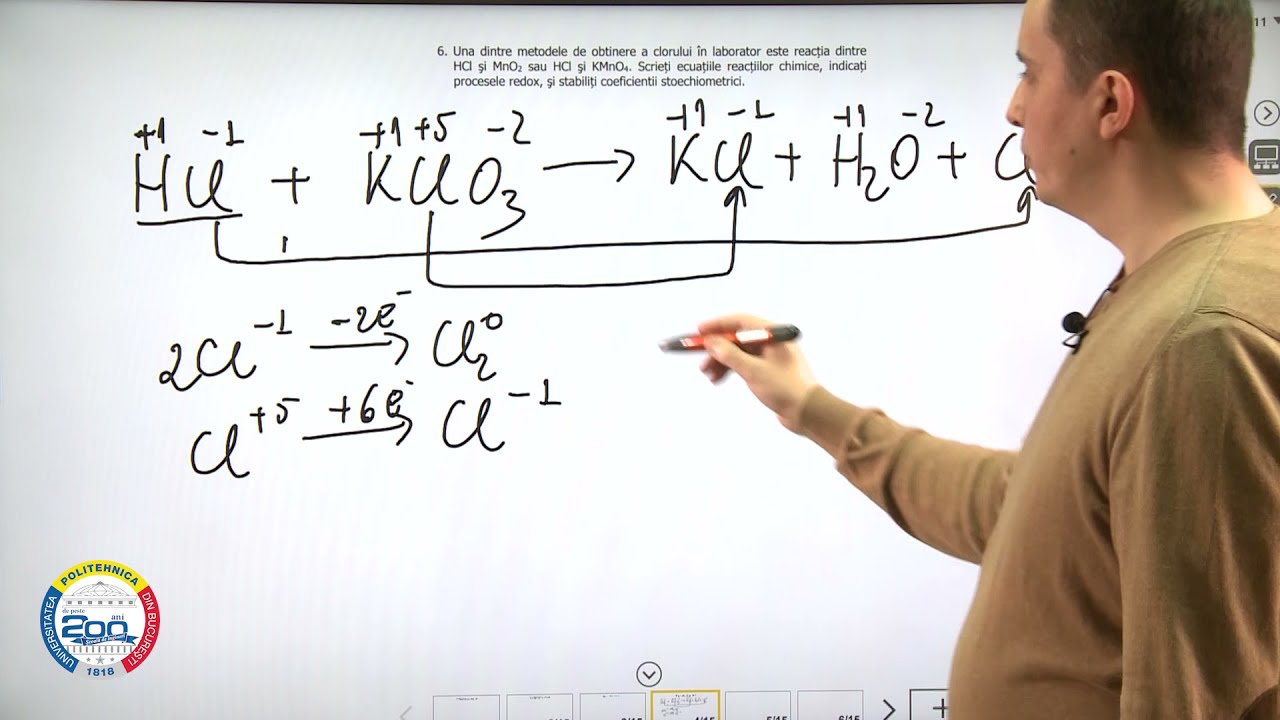 6. Una dintre metodele de obtinere a clorului în laborator este reacția dintre
HCl și MnO₂ sau HCl și KMnO₄. Scrieți ecuațiile reacțiilor chimice, indicați
procesele redox, și stabiliți coeficientii stoechiometrici.
+1 -1 +1 +5 -2 +1 -1 +1 -2
HCl + KClO₃ → KCl + H₂O + Cl
2Cl⁻¹ -2e⁻→ Cl₂⁰
Cl⁺⁵ +6e⁻→ Cl⁻¹
UNIVERSITATEA POLITEHNICA DIN BUCUREȘTI
de peste
200 ani
1818
11